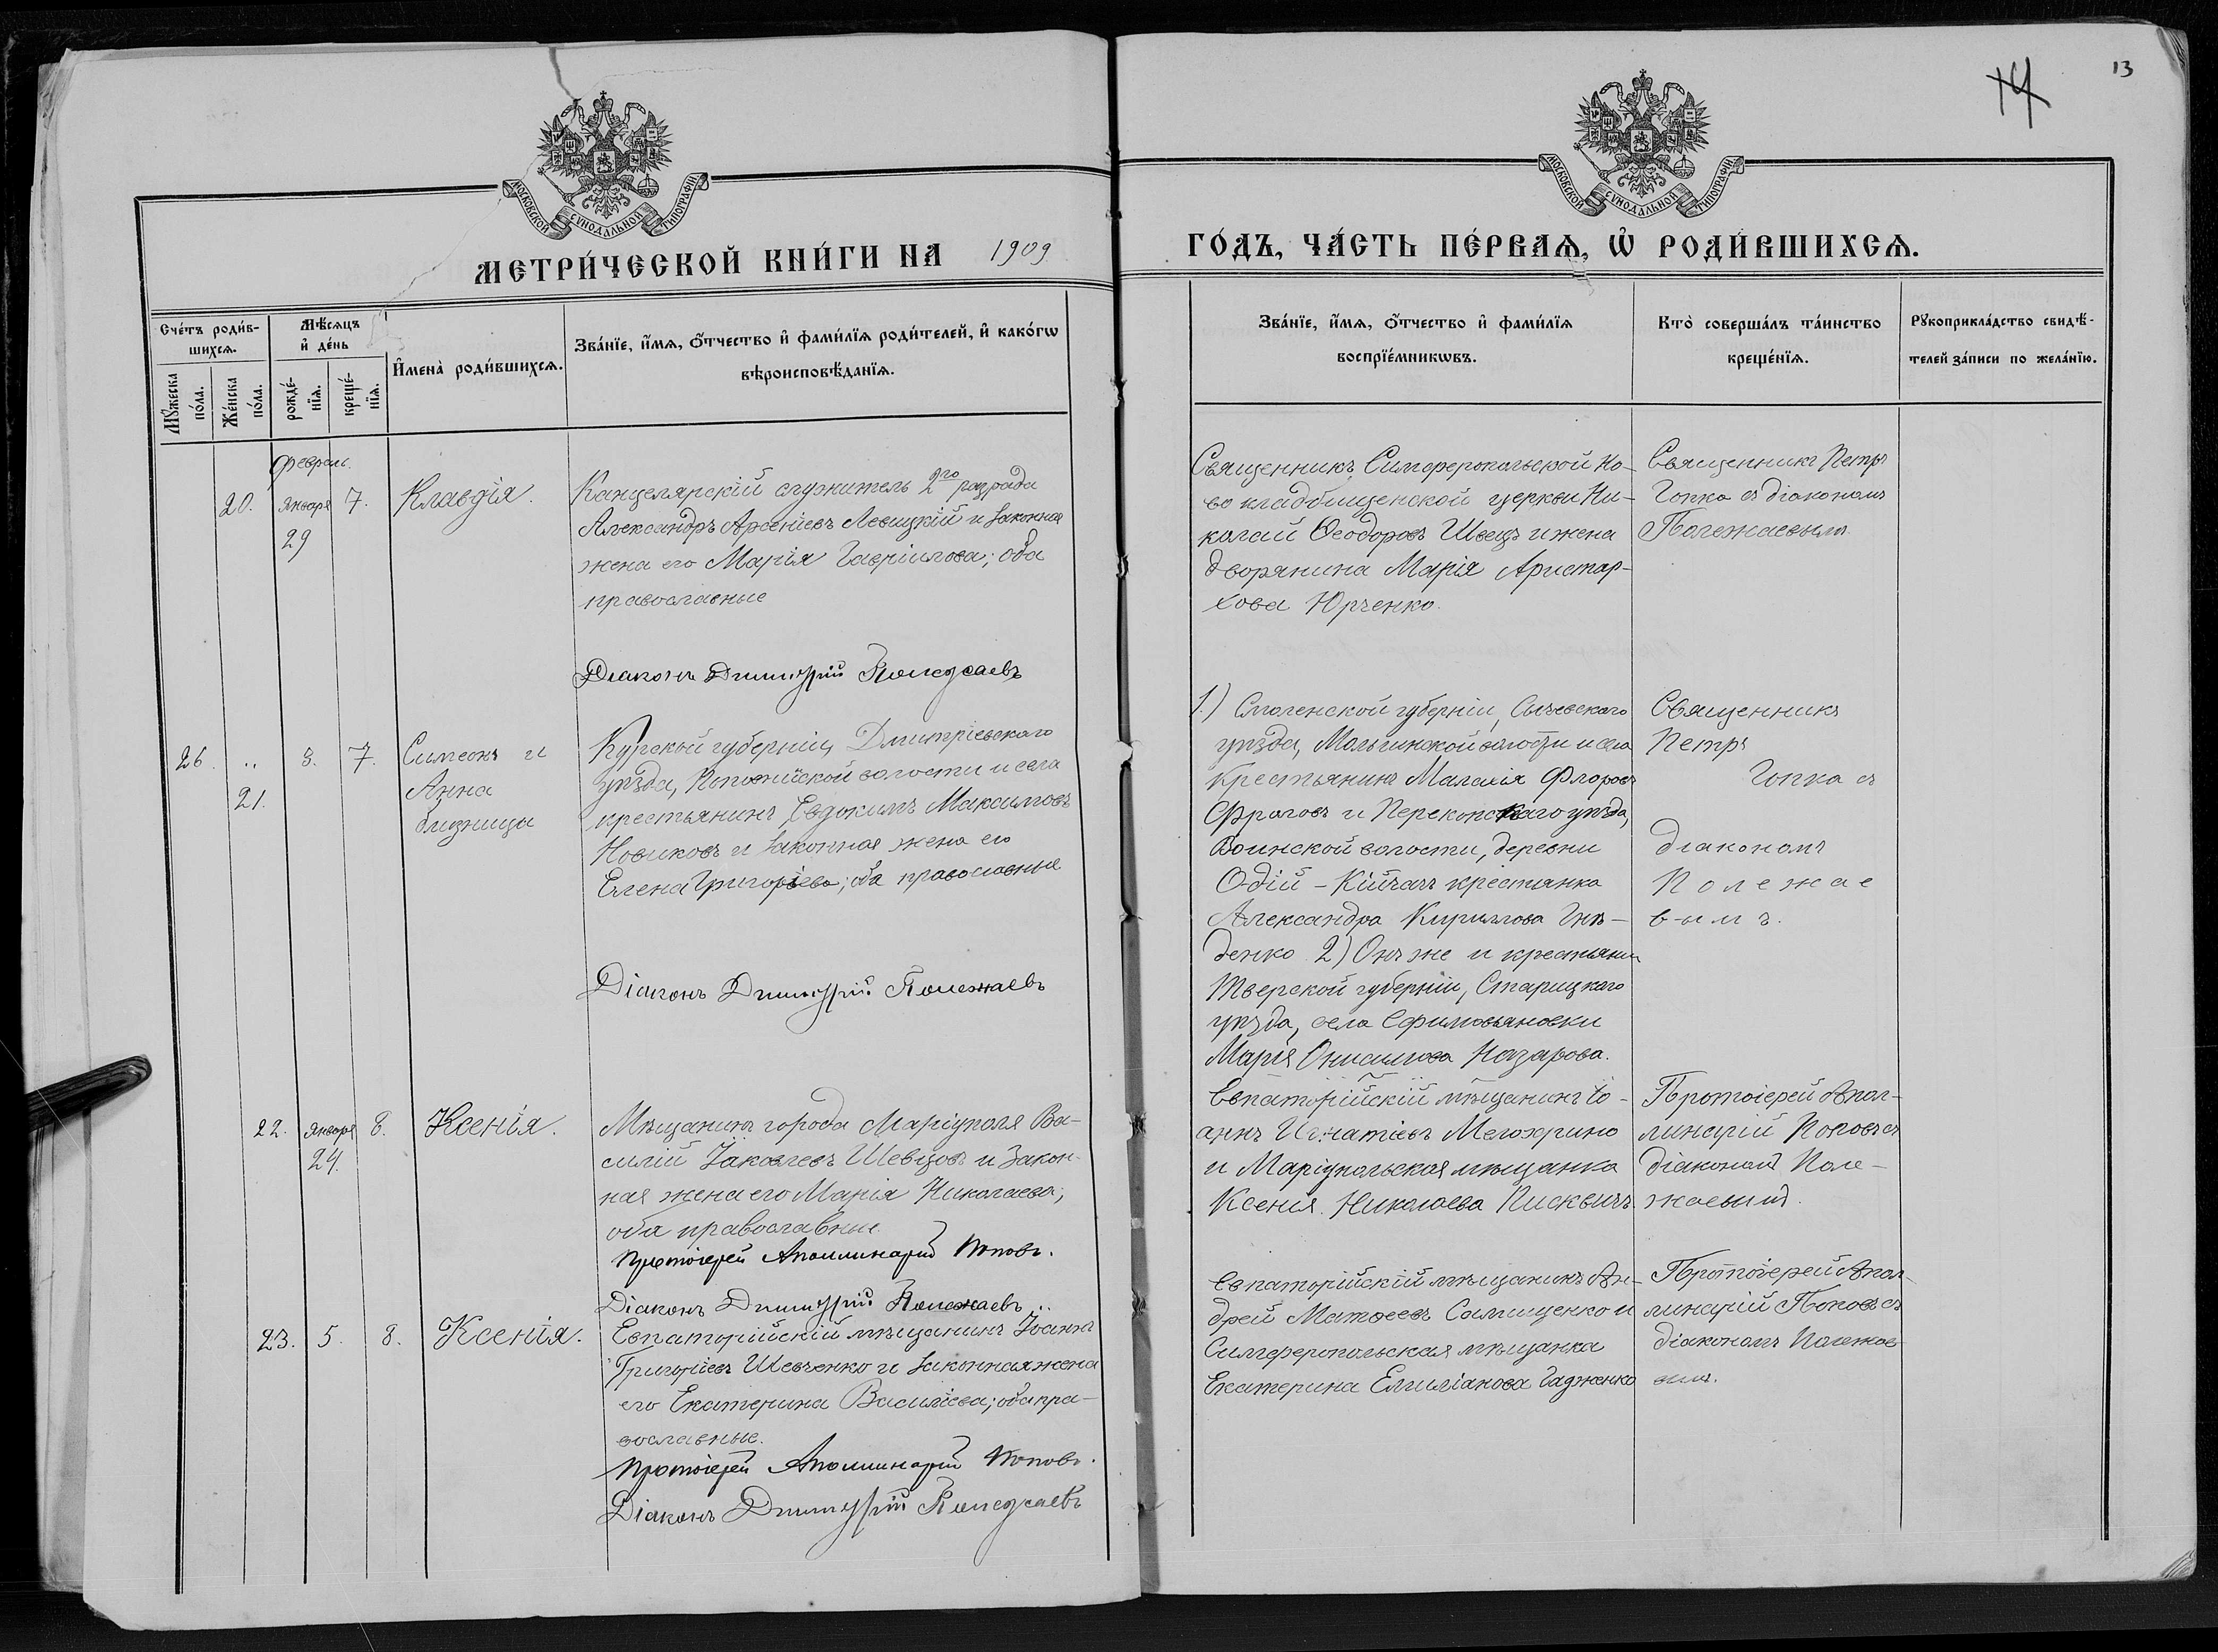 13
14
МОСКОВСКОЙ СѴНОДАЛЬНОЙ ТИПОГРАФІИ
МОСКОВСКОЙ СѴНОДАЛЬНОЙ ТИПОГРАФІИ
МЕТРИ́ЧЕСКОЙ КНИ́ГИ НА 1909
ГО́ДЪ, ЧА́СТЬ ПЕ́РВАѦ, Ѡ҆ РОДИ́ВШИХСѦ.
Сче́тъ роди́в-
шихсѧ.
Мѣ́сѧцъ
и҆ де́нь
Мꙋ́жеска по́ла.
Же́нска по́ла.
рожде́-
нїѧ.
креще́-
нїѧ.
И҆мена̀ роди́вшихсѧ.
Зва́нїе, и҆́мѧ, ѻ҆́тчество и҆ фами́лїѧ роди́телей, и҆ како́гѡ
вѣроисповѣ́данїѧ.
Зва́нїе, и҆́мѧ, ѻ҆́тчество и҆ фами́лїѧ
воспрїе́мникѡвъ.
Кто̀ соверша́лъ та́инство
креще́нїѧ.
Рꙋкоприкла́дство свидѣ́-
телей за́писи по жела́нїю.
Февраль.
20. Января 7. Клавдія.
29
Канцелярскій служитель 2го разряда
Александръ Арсеніевъ Левицкій и законная
жена его Марія Гавріилова; оба
православные
Діаконъ Димитрій Полежаевъ
Священникъ Симферопольской Но-
во кладбищенской церкви Ни-
колай Ѳеодоровъ Швецъ и жена
дворянина Марія Аристар-
хова Юрченко.
Священникъ Петръ
Гопка съ діакономъ
Полежаевымъ.
26. „ 3. 7. Симеонъ и
21. Анна
близницы
Курской губерніи, Дмитріевскаго
уѣзда, волости и села
крестьянинъ Евдокимъ Максимовъ
Новиковъ и законная жена его
Елена Григорьева; оба православные
Діаконъ Димитрій Полежаевъ
1.) Смоленской губерніи, Сычевскаго
уѣзда, волости и села
крестьянинъ Малахія Флоровъ
Фроловъ и Перекопскаго уѣзда,
Воинской волости, деревни
Одій-Кійчакъ крестьянка
Александра Кириллова Гнѣ-
денко 2) Онъ же и крестьянка
Тверской губерніи, Старицкаго
уѣзда, села
Марія Онисимова Назарова.
Священникъ
Петръ
Гопка съ
діакономъ
Полежае
вымъ.
22. Января 8. Ксенія.
24.
Мѣщанинъ города Маріуполя Ва-
силій Іаковлевъ Шевцовъ и закон-
ная жена его Марія Николаева;
оба православные
Протоіерей Аполлинарій Поповъ.
Діаконъ Димитрій Полежаевъ.
Евпаторійскій мѣщанинъ Іо-
аннъ Игнатіевъ
и Маріупольская мѣщанка
Ксенія Николаева Писквичъ.
Протоіерей Апол-
линарій Поповъ съ
діакономъ Поле-
жаевымъ.
23. 5. 8. Ксенія.
Евпаторійскій мѣщанинъ Іоаннъ
Григоріевъ Шевченко и законная жена
его Екатерина Василіева; оба пра-
вославные.
Протоіерей Аполлинарій Поповъ.
Діаконъ Димитрій Полежаевъ
Евпаторійскій мѣщанинъ Ан-
дрей Матѳеевъ Самищенко и
Симферопольская мѣщанка
Екатерина Емиліанова Гадженко
Протоіерей Апол-
линарій Поповъ съ
діакономъ Полежае-
вымъ.